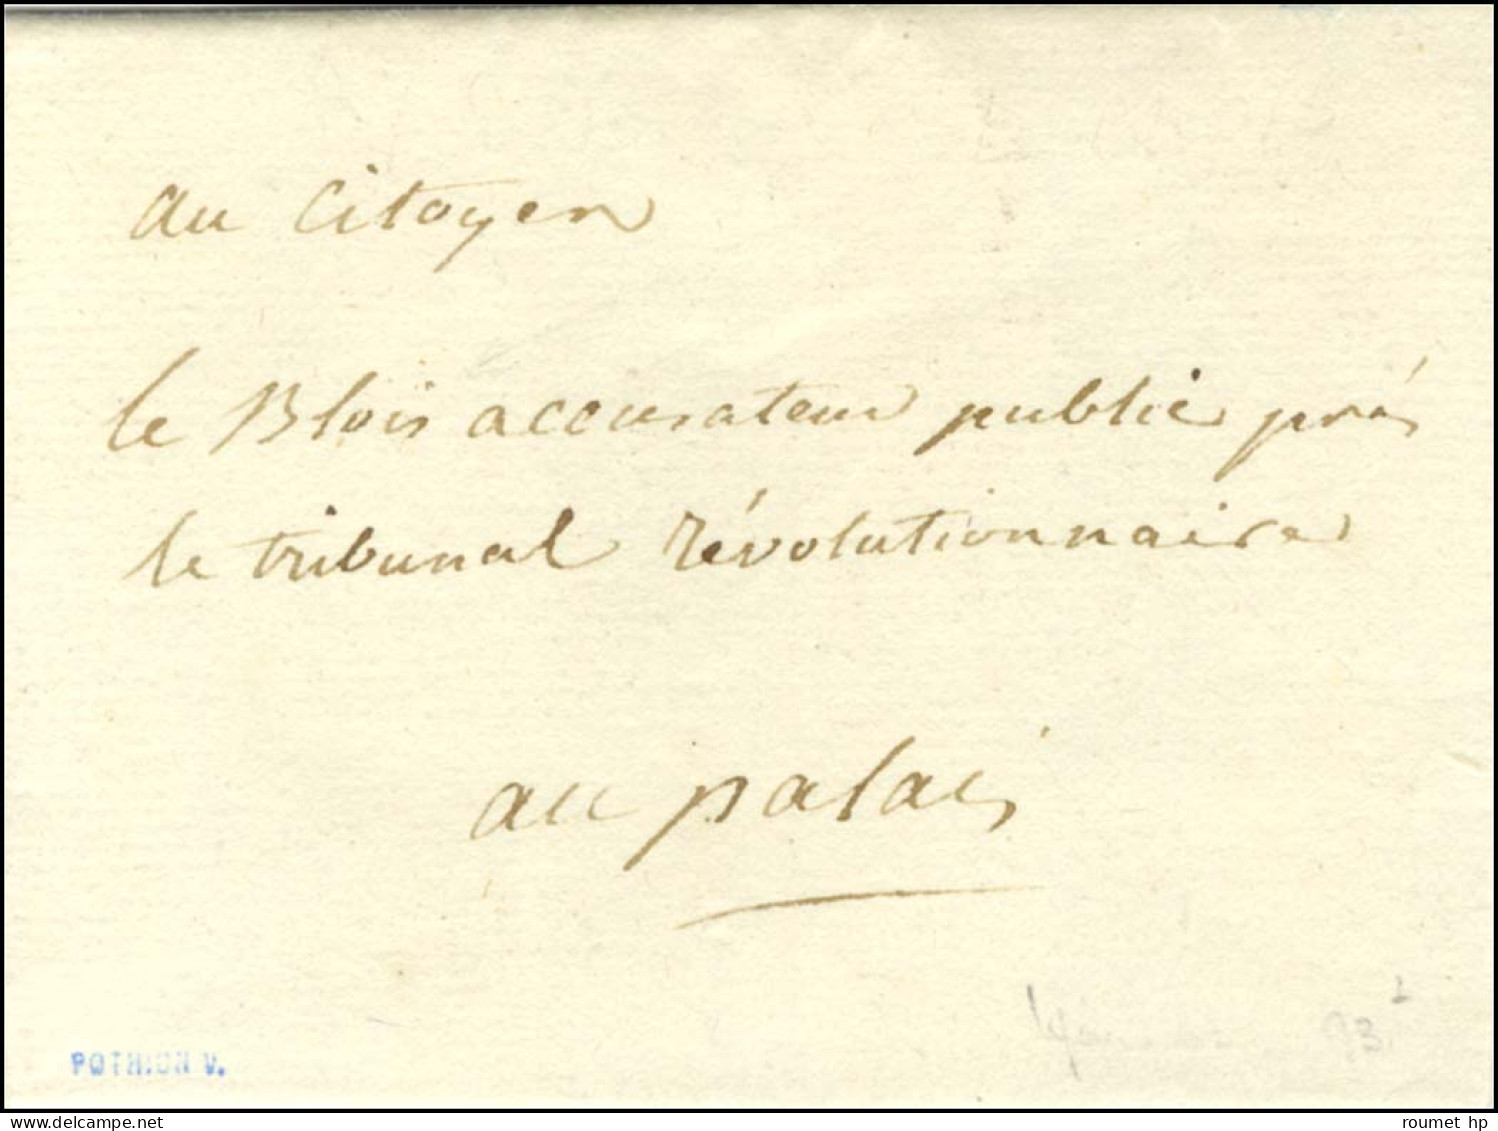 au citoyen
le Blois accusateur public prés
le tribunal révolutionnaire
au palais
93
POTHION V.
roumet hp